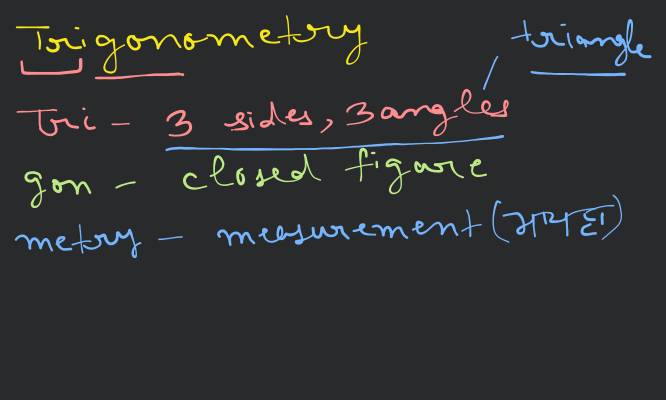 Trigonometry
triangle
Tri - 3 sides, 3 angles
gon - closed figare
metry - measurement